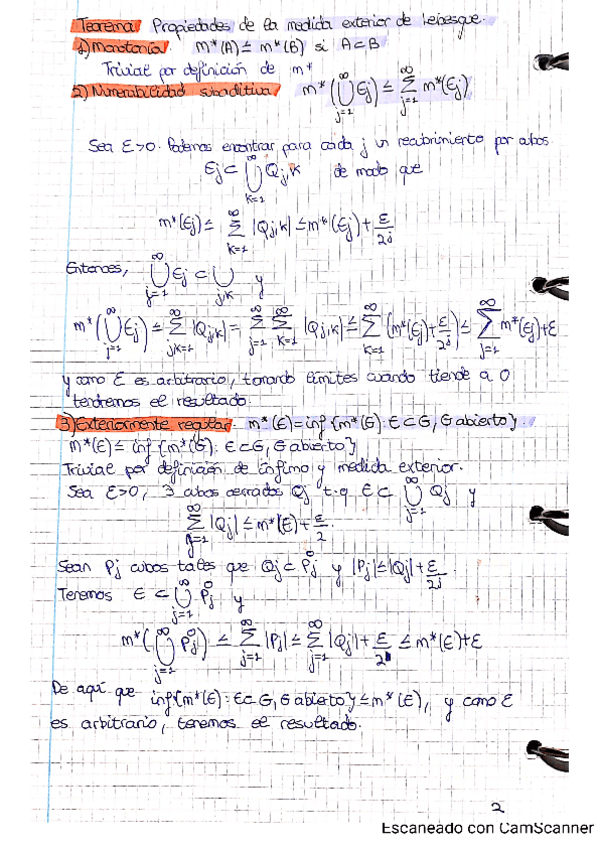 Teorema Propiedades de la medida exterior de Lebesgue.
1) Monotonía. m*(A) ≤ m*(B) si A⊂B
Trivial por definición de m*
2) Numerabilidad subaditiva m*(⋃_{j=1}^∞ Ej) ≤ ∑_{j=1}^∞ m*(Ej)
Sea ε>0. Podemos encontrar para cada j un recubrimiento por cubos
Ej ⊂ ⋃_{k=1}^∞ Qj,k de modo que
m*(Ej) ≤ ∑_{k=1}^∞ |Qj,k| ≤ m*(Ej) + ε/2^j
Entonces, ⋃_{j=1}^∞ Ej ⊂ ⋃_{j,k} y
m*(⋃_{j=1}^∞ Ej) ≤ ∑_{j,k=1}^∞ |Qj,k| = ∑_{j=1}^∞ ∑_{k=1}^∞ |Qj,k| ≤ ∑_{k=1}^∞ (m*(Ej) + ε/2^j) ≤ ∑_{j=1}^∞ m*(Ej) + ε
y como ε es arbitrario, tomando límites cuando tiende a 0
tendremos el resultado.
3) Exteriormente regular. m*(E) = inf{m*(G): E⊂G, G abierto}.
m*(E) ≤ inf{m*(G): E⊂G, G abierto}
Trivial por definición de ínfimo y medida exterior.
Sea ε>0, ∃ cubos cerrados Qj t.q E ⊂ ⋃_{j=1}^∞ Qj y
∑_{j=1}^∞ |Qj| ≤ m*(E) + ε/2
Sean Pj cubos tales que Qj ⊂ P̊j y |Pj| ≤ |Qj| + ε/2^j.
Tenemos E ⊂ ⋃_{j=1}^∞ P̊j y
m*(⋃_{j=1}^∞ P̊j) ≤ ∑_{j=1}^∞ |Pj| ≤ ∑_{j=1}^∞ |Qj| + ε/2 ≤ m*(E) + ε
De aquí que inf{m*(E): E⊂G, G abierto} ≤ m*(E), y como ε
es arbitrario, tenemos el resultado.
2
Escaneado con CamScanner